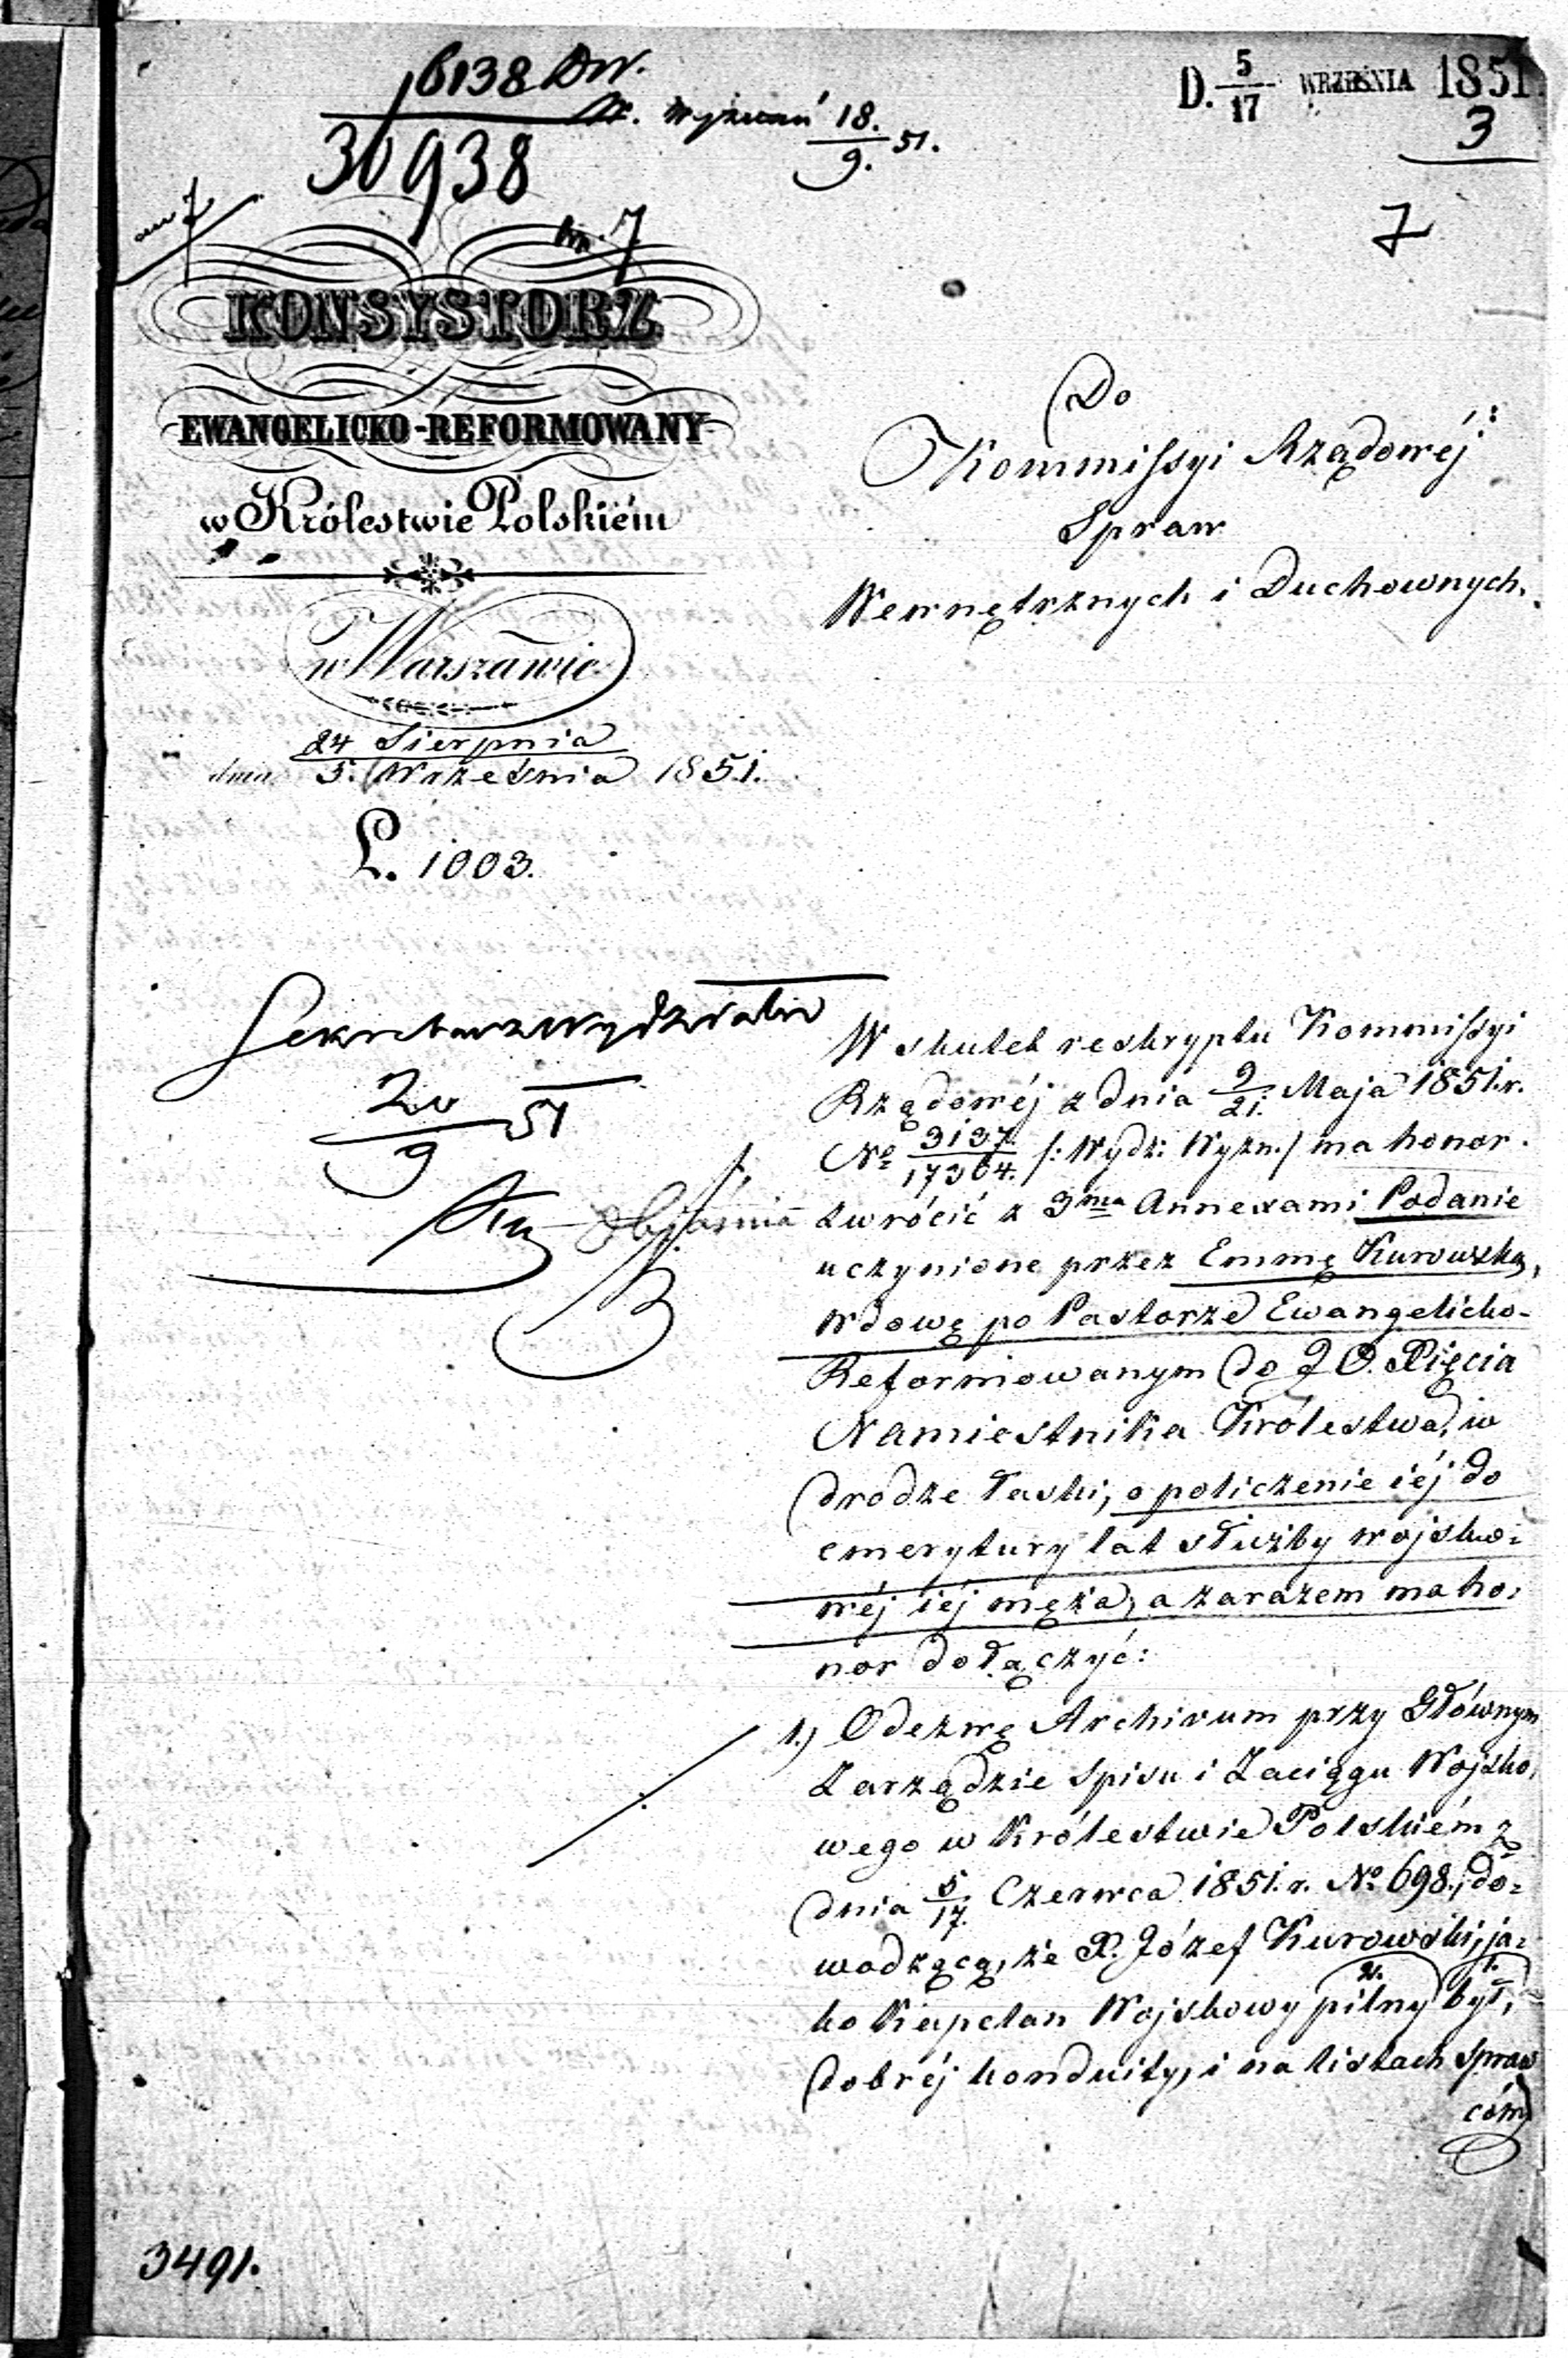 6138 Dw.
30938
W. Wyznań 18./9. 51.
D. 5/17 WRZEŚNIA 1851.
3
7
KONSYSTORZ
EWANGELICKO-REFORMOWANY
w Królestwie Polskiém
w Warszawie
dnia 24 Sierpnia / 5. Września 1851.
L. 1003.
Do
Kommissyi Rządowéj
Spraw
Wewnętrznych i Duchownych.
Sekretarz Wydziału
20/9 51
objaśnia
W skutek reskryptu Kommissyi
Rządowéj z dnia 9/21. Maja 1851. r.
No 3137./17364. /: Wydz: Wyzn./ ma honor
zwrócić z 3ma Annexami Podanie
uczynione przez Emmę Kurowską,
wdowę po Pastorze Ewangelicko-
Reformowanym do J. O. Xięcia
Namiestnika Królestwa, w
drodze łaski, o policzenie iéj do
emerytury lat służby wojsko-
wéj iéj męża, a zarazem ma ho-
nor dołączyć:
1.) Odezwę Archivum przy Głównym
Zarządzie Spisu i Zaciągu Wojsko-
wego w Królestwie Polskiém z
dnia 5/17. Czerwca 1851. r. No 698., do-
wodzącą, że X. Józef Kurowski, ja-
ko Kapelan Wojskowy pilny był,
2. 1.
dobréj konduity, i na listach spraw
ców
3491.